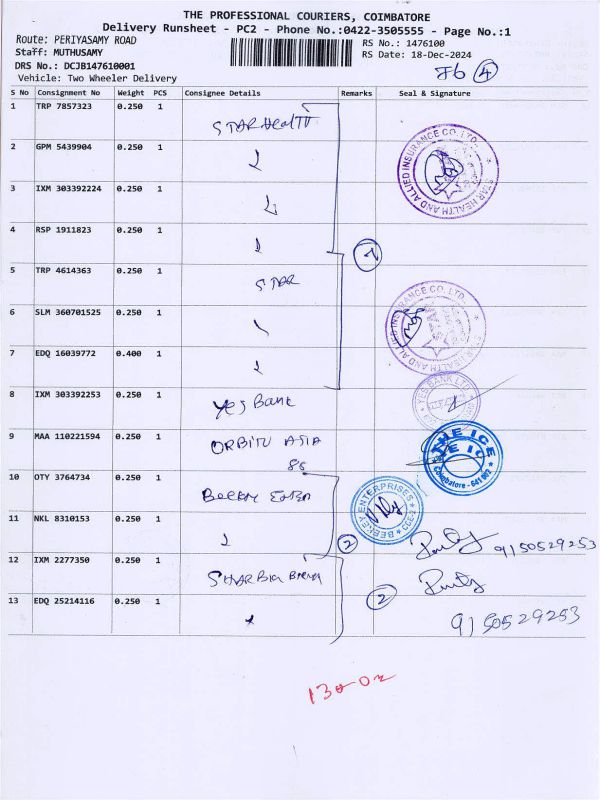 THE PROFESSIONAL COURIERS, COIMBATORE
Delivery Runsheet - PC2 - Phone No.:0422-3505555 - Page No.:1
Route: PERIYASAMY ROAD
RS No.: 1476100
Staff: MUTHUSAMY
RS Date: 18-Dec-2024
DRS No.: DCJB147610001
Vehicle: Two Wheeler Delivery
4
S No Consignment No Weight PCS Consignee Details Remarks Seal & Signature
1 TRP 7857323 0.250 1 STAR HealTH
2 GPM 5439904 0.250 1
STAR HEALTH AND ALLIED INSURANCE CO. LTD.
3 IXM 303392224 0.250 1
4 RSP 1911823 0.250 1
7
5 TRP 4614363 0.250 1 STAR
6 SLM 360701525 0.250 1
STAR HEALTH AND ALLIED INSURANCE CO. LTD.
7 EDQ 16039772 0.400 1
8 IXM 303392253 0.250 1 Yes Bank
YES BANK LTD
9 MAA 110221594 0.250 1 ORBITU ASIA
THE ICE
Coimbatore - 641 002
10 OTY 3764734 0.250 1
BEEKEY ENTERPRISES
CBE-2
11 NKL 8310153 0.250 1
2
9150529253
12 IXM 2277350 0.250 1
2
13 EDQ 25214116 0.250 1
9150529253